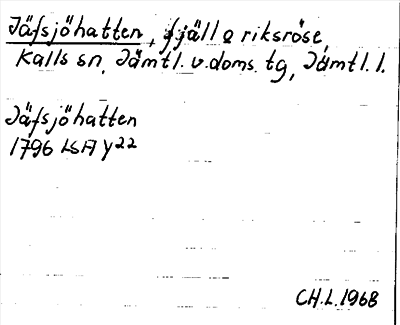 Jäfsjöhatten, fjäll o riksröse,
Kalls sn, Jämtl. v. doms. tg, Jämtl. l.
Jäfsjöhatten
1796 LSA Y22
CH.L. 1968